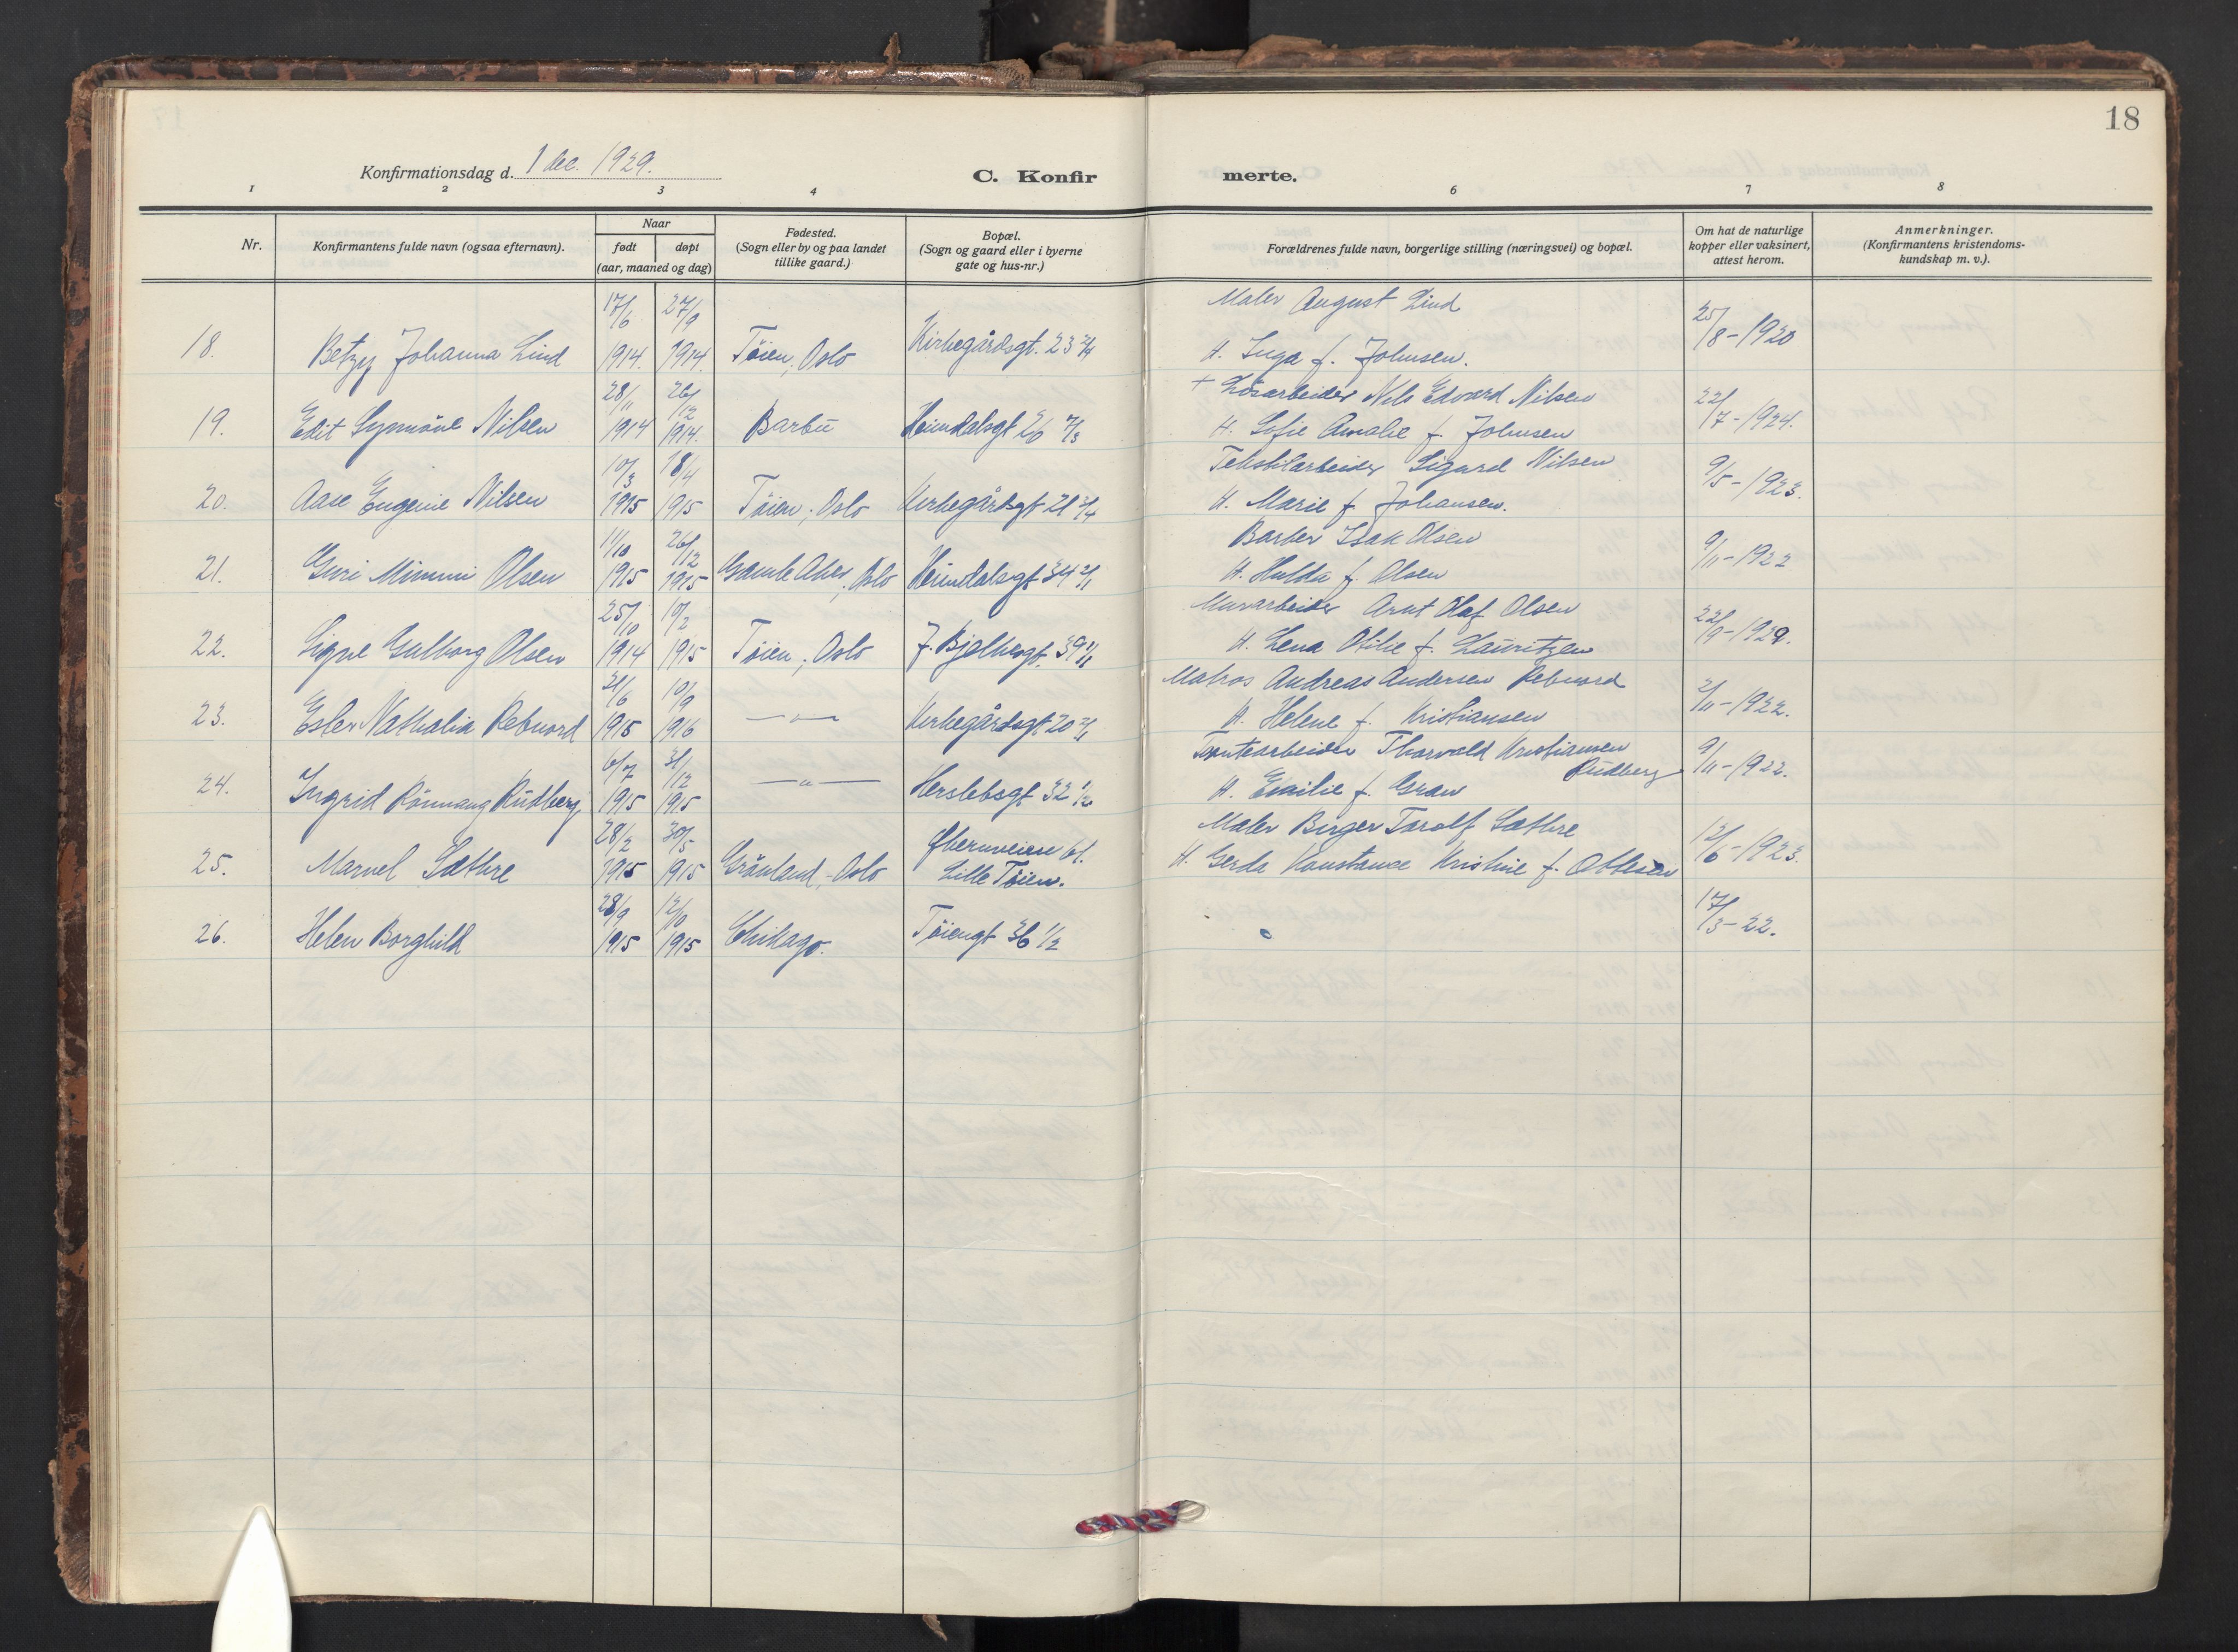 18
Konfirmationsdag d. 1 dec. 1929.
C. Konfirmerte.
1 2 3 4 6 7 8
Nr.
Konfirmantens fulde navn (ogsaa efternavn).
Naar
født døpt
(aar, maaned og dag)
Fødested.
(Sogn eller by og paa landet
tillike gaard.)
Bopæl.
(Sogn og gaard eller i byerne
gate og hus-nr.)
Forældrenes fulde navn, borgerlige stilling (næringsvei) og bopæl.
Om hat de naturlige
kopper eller vaksinert,
attest herom.
Anmerkninger.
(Konfirmantens kristendoms-
kundskap m. v.).
17/6 27/9 Maler August Lind
18. Betzy Johanna Lind 1914. 1914. Tøien, Oslo Kirkegårdsgt. 23 H. Inga f. Johnsen. 25/8-1920
28/11 26/12 + Løsarbeider Nils Edvard Nilsen
19. Edit Synnöve Nilsen 1914 1914. Barbu Heimdalsgt 26 H. Sofie Amalie f. Johnsen 22/7-1924.
10/3 18/4 Tekstilarbeider Sigurd Nilsen
20. Aase Eugenie Nilsen 1915 1915 Tøien, Oslo Kirkegårdsgt 21 H. Marie f. Johansen. 9/5-1923.
11/10 26/12 Barber Isak Olsen
21. Guri Mimmi Olsen 1915 1915 Gamle Aker, Oslo Heimdalsgt 34 H. Hulda f. Olsen 9/11-1922
25/10 10/2 Murarbeider Arnt Olaf Olsen
22. Signe Gulborg Olsen 1914 1915 Tøien, Oslo J. Bjelkesgt. 39 H. Lena Otilie f. Lauritzen 22/9-1929.
10/9 Matros Andreas Andersen Rebnord
23. Ester Nathalia Rebnord 1915 1916 —"— Kirkegårdsgt 20 H. Helene f. Kristiansen 2/11-1922.
6/7 31/12 Thorvald Kristiansen
Rudberg
24. Ingrid Rönnaug Rudberg 1915 1915 —"— Herslebsgt 32 1/2 H. Emilie f. Gran 9/11-1922.
28/2 30/5 Økernveien 61. Maler Birger Torolf Sæthre
25. Marvel Sæthre 1915 1915 Grönland, Oslo Lille Tøien. H. Gerda Konstanse Kristine f. Ottesen 12/6-1923.
28/9 12/10 17/3-22.
26. Helen Borghild 1915 1915 Chikago. Tøiengt 36 1/2